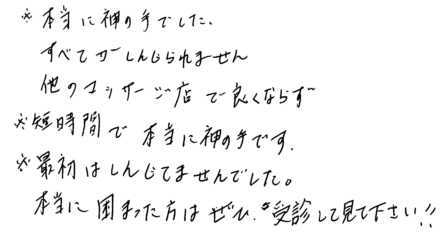 ※本当に神の手でした。
すべてがしんじられません
他のマッサージ店で良くならず
※短時間で本当に神の手です.
※最初はしんじてませんでした。
本当に困まった方はぜひ、受診して見て下さい!!